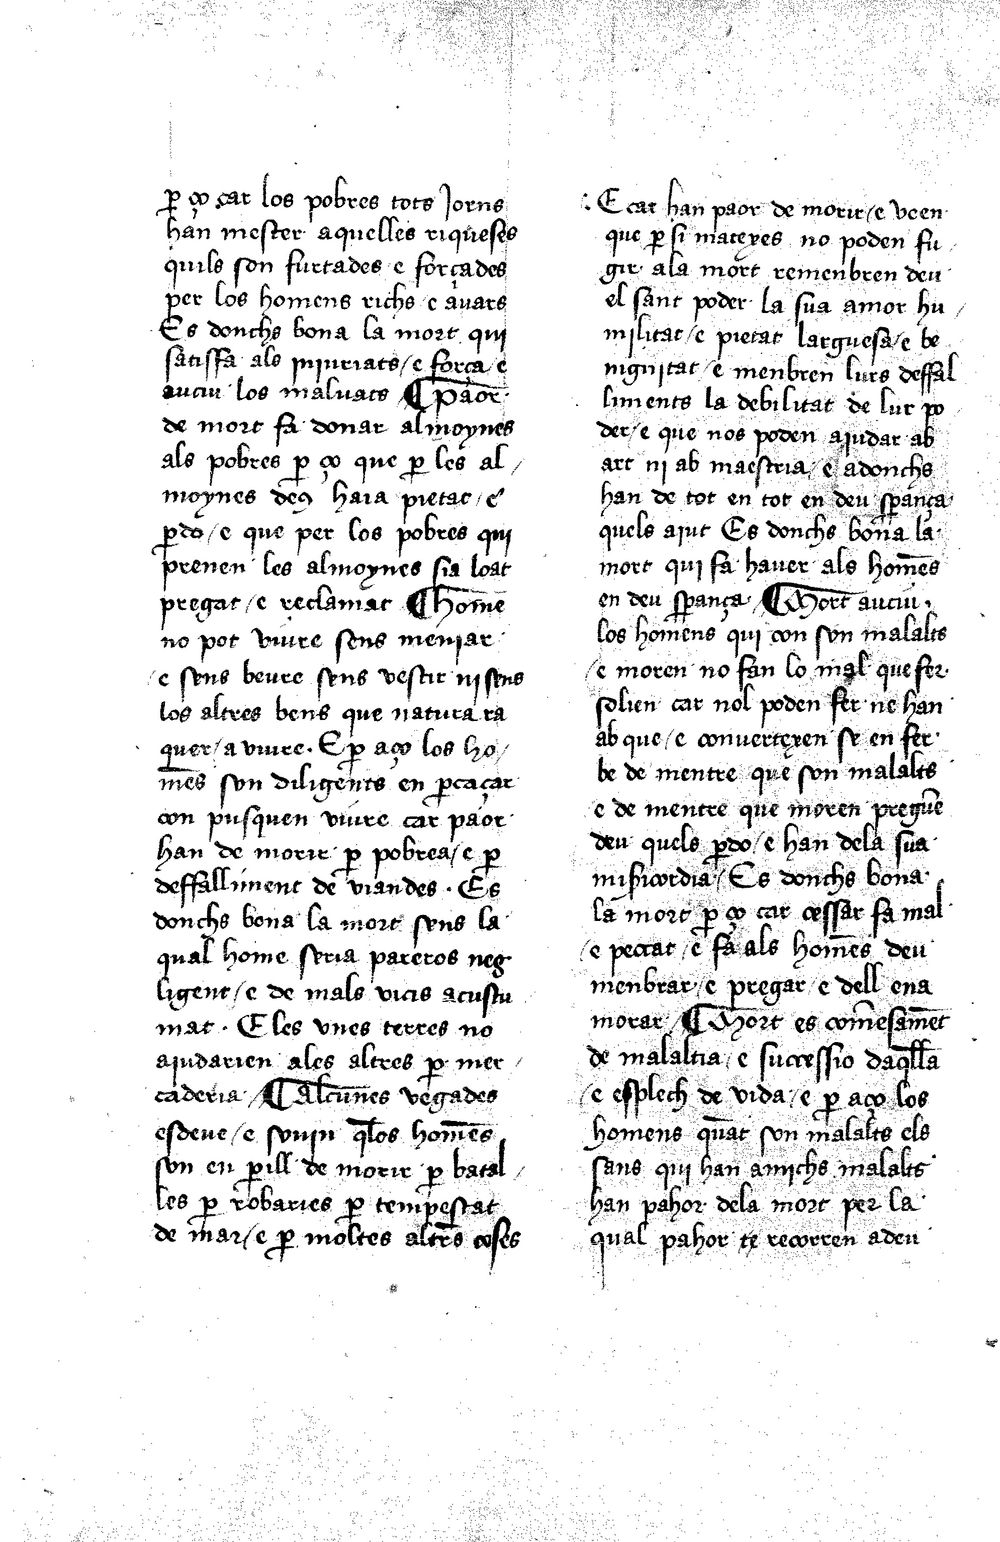 ꝑ ço car los pobres tots Jorns
han mester aquelles riqueses
quils son furtades e forçades
per los homens richs e auars
Es donchs bona la mort qui
satisffa als iniuriats / e força e
auciu los maluats ¶ Paor
de mort fa donar almoynes
als pobres ꝑ ço que ꝑ les al /
moynes deꝯ haia pietat / e
ꝑdo / e que per los pobres qui
prenen les almoynes sia loat
pregat / e reclamat ¶ home
no pot viure sens meniar
/ e sens beure sens vestir ni sens
los altres bens que natura ra
quer / a viure. E ꝑ aço los ho /
mēs son diligents en ꝑcaçar
con pusquen viure car paor
han de morir ꝑ pobrea / e ꝑ
deffalliment de viandes. Es
donchs bona la mort sens la
qual home seria pareros neg
ligent / e de mals vicis acustu
mat. E les vnes terres no
aiudarien ales altres ꝑ mer /
caderia / ¶ Alcunes vegades
esdeue / e souin q̄los homēs
son en ꝑill de morir ꝑ batal /
les ꝑ robaries ꝑ tempestat
de mar / e ꝑ moltes altrēs coses
E car han paor de morir / e veen
que ꝑ si mateyes no poden fu /
gir ala mort remenbren deu
el sant poder la sua amor hu /
militat / e pietat larguesa / e be
nignitat / e menbren lurs deffal
liments la debilitat de lur po
der / e que nos poden aiudar ab
art ni ab maestria / e adonchs
han de tot en tot en deu sꝑança
quels aiut Es donchs bona la
mort qui fa hauer als homēs
en deu sꝑança / ¶ Mort auciu
los homens qui con son malalts
/ e moren no fan lo mal que fer
solien car nol poden fer ne han
ab que / e conuerteyen se en fer
be de mentre que son malalts
e de mentre que moren preguē
deu quels ꝑdo / e han dela sua
misicordia / Es donchs bona
la mort ꝑ ço car cessar fa mal
/ e peccat / e fa als homēs deu
menbrar / e pregar / e dell ena
morar / ¶ Mort es comēsamēt
de malaltia / e successio daq̄lla
/ e esplech de vida / e ꝑ aço los
homens quāt son malalts els
sans qui han amichs malalts
han pahor dela mort per la
qual pahor te recorren a deu